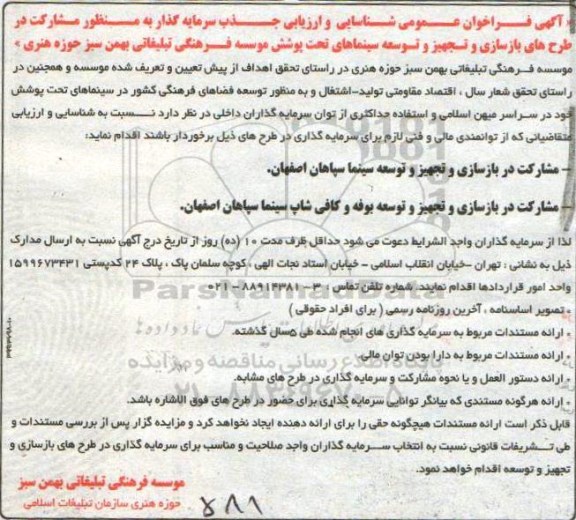 « آگهی فراخوان عمومی شناسایی و ارزیابی جذب سرمایه گذار به منظور مشارکت در
طرح های بازسازی و تجهیز و توسعه سینماهای تحت پوشش موسسه فرهنگی تبلیغاتی بهمن سبز حوزه هنری »
موسسه فرهنگی تبلیغاتی بهمن سبز حوزه هنری در راستای تحقق اهداف از پیش تعیین و تعریف شده موسسه و همچنین در
راستای تحقق شعار سال ، اقتصاد مقاومتی تولید-اشتغال و به منظور توسعه فضاهای فرهنگی کشور در سینماهای تحت پوشش
خود در سراسر میهن اسلامی و استفاده حداکثری از توان سرمایه گذاران داخلی در نظر دارد نسبت به شناسایی و ارزیابی
متقاضیانی که از توانمندی مالی و فنی لازم برای سرمایه گذاری در طرح های ذیل برخوردار باشند اقدام نماید:
– مشارکت در بازسازی و تجهیز و توسعه سینما سپاهان اصفهان.
– مشارکت در بازسازی و تجهیز و توسعه بوفه و کافی شاپ سینما سپاهان اصفهان.
لذا از سرمایه گذاران واجد الشرایط دعوت می شود حداقل ظرف مدت ۱۰ (ده) روز از تاریخ درج آگهی نسبت به ارسال مدارک
ذیل به نشانی : تهران -خیابان انقلاب اسلامی - خیابان استاد نجات الهی ، کوچه سلمان پاک ، پلاک ۲۴ کدپستی ۱۵۹۹۶۷۳۴۳۱
واحد امور قراردادها اقدام نمایند. شماره تلفن تماس : ۳- ۸۸۹۱۴۳۸۱ -۰۲۱
ParsNamadData
• تصویر اساسنامه ، آخرین روزنامه رسمی ( برای افراد حقوقی )
• ارائه مستندات مربوط به سرمایه گذاری های انجام شده طی ۵سال گذشته.
• ارائه مستندات مربوط به دارا بودن توان مالی
پایگاه اطلاع رسانی مناقصه و مزایده
• ارائه دستور العمل و یا نحوه مشارکت و سرمایه گذاری در طرح های مشابه.
۰۲۱-۸۸۳۴۹۶۷۰-۵
• ارائه هرگونه مستندی که بیانگر توانایی سرمایه گذاری برای حضور در طرح های فوق الاشاره باشد.
قابل ذکر است ارائه مستندات هیچگونه حقی را برای ارائه دهنده ایجاد نخواهد کرد و مزایده گزار پس از بررسی مستندات و
طی تشریفات قانونی نسبت به انتخاب سرمایه گذاران واجد صلاحیت و مناسب برای سرمایه گذاری در طرح های بازسازی و
تجهیز و توسعه اقدام خواهد نمود.
موسسه فرهنگی تبلیغاتی بهمن سبز
حوزه هنری سازمان تبلیغات اسلامی